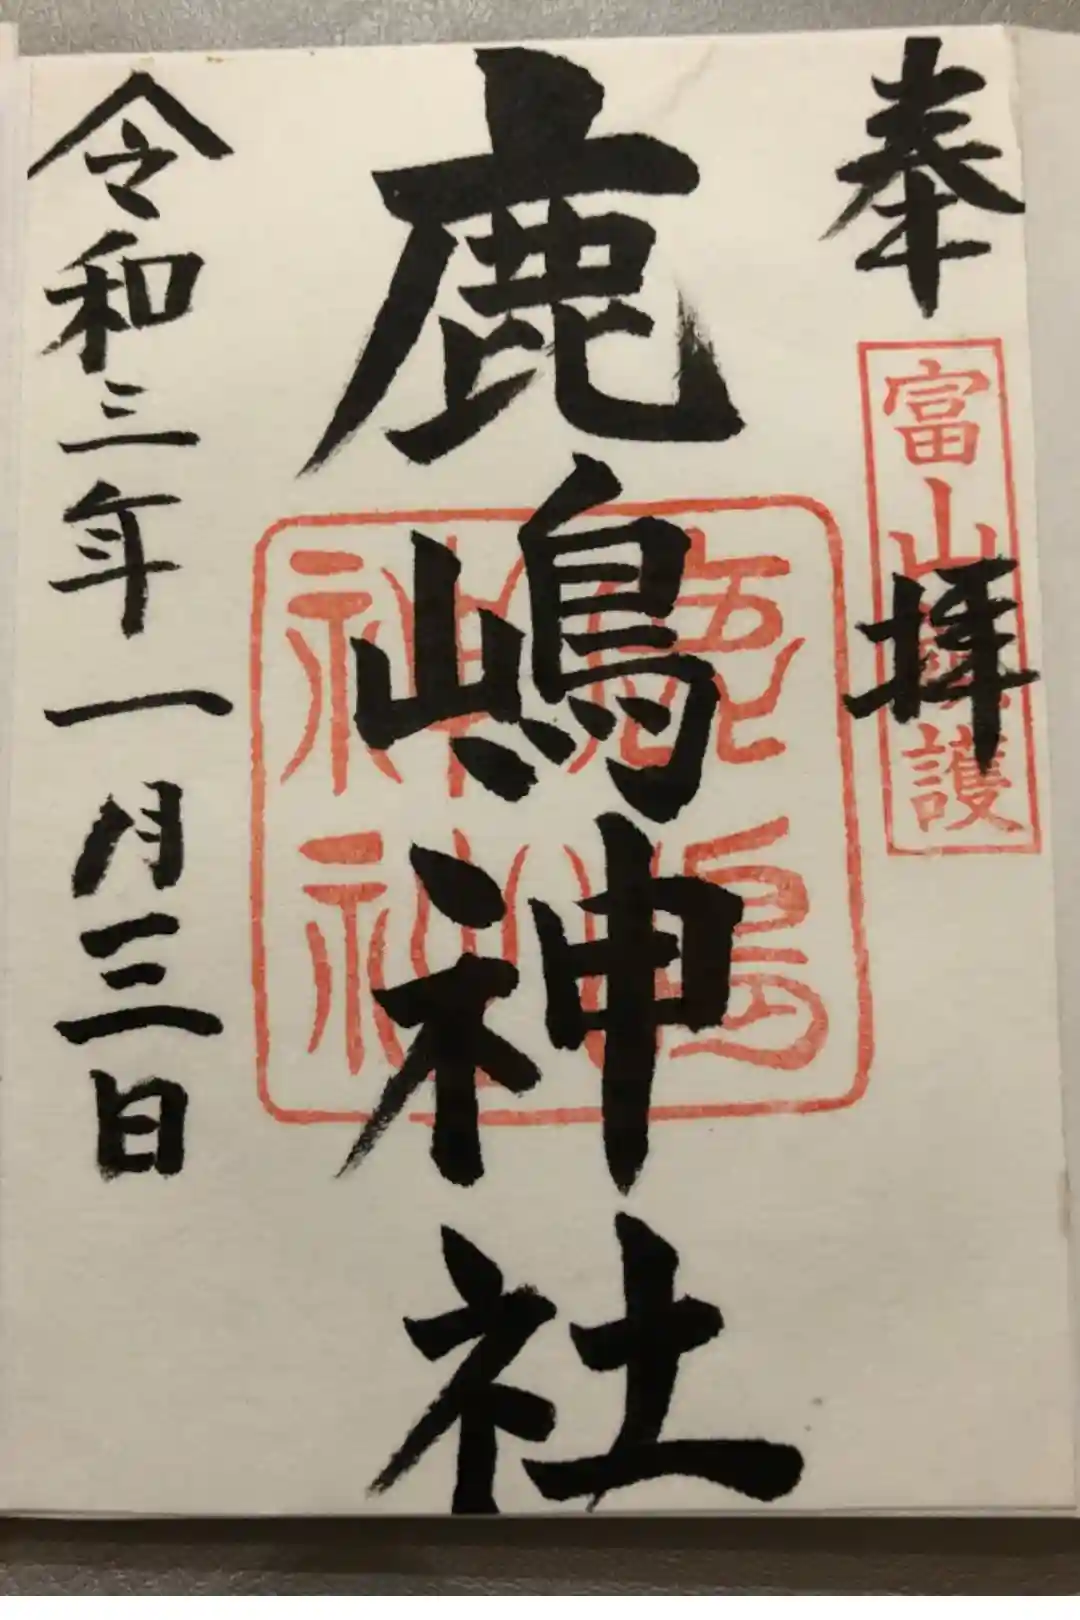 奉拝
富山鎮護
鹿嶋神社
鹿嶋神社
令和三年一月三日